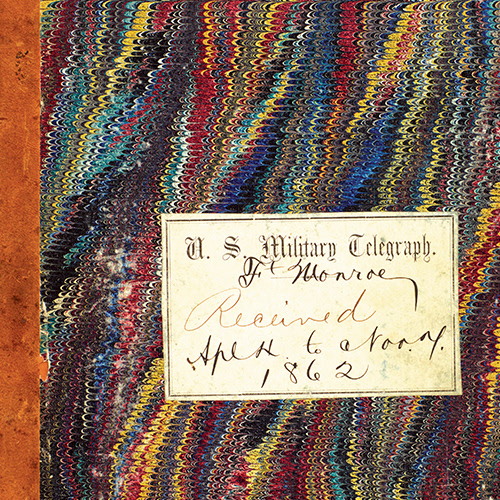 U. S. Military Telegraph.
Ft Monroe
Received
Apl 4 to Nov. 4.
1862